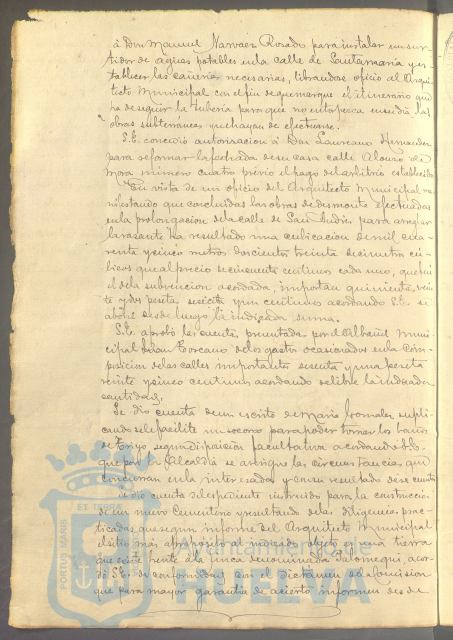 á Don Manuel Narvaez Rosado para instalar un sur-
tidor de aguas potables en la calle de Santa Maria y es-
tablecer las cañerias necesarias, librandose oficio al Arqui-
tecto Municipal con el fin de que marque el itinerario que
ha de seguir la tuberia para que no entorpezca en su dia las
obras subterráneas que hayan de efectuarse.
S.E. concedió autorizacion á Don Laureano Hernandez
para reformar la fachada de su casa calle Alonso de
Mora número cuatro previo el pago del arbitrio establecido.
En vista de un oficio del Arquitecto Municipal ma-
nifestando que concluidas las obras de desmonte efectuadas
en la prolongacion de la calle de San Andrés para arreglar
la rasante ha resultado una cubicacion de mil cua-
renta y cinco metros doscientos treinta decimetros cú-
bicos que al precio de cincuenta centimos cada uno, que es
el de la subvencion acordada, importan quinientas vein-
te y dos pesetas sesenta y un centimos acordando S.E. se
abone desde luego la indicada suma.
S.E. aprobó la cuenta presentada por el Albañil Muni-
cipal Juan Toscano de los gastos ocasionados en la com-
posicion de las calles importante sesenta y una peseta
veinte y cinco centimos acordando se libre la indicada
cantidad.
Se dió cuenta de un escrito de Maria Gonzalez supli-
cando se le facilite un socorro para poder tomar los baños
de segun disposicion facultativa acordando S.E.
que por la Alcaldia se averigue las circunstancias que
concurran en la interesada y con su resultado dese cuenta
Se dió cuenta del espediente instruido para la construccion
de un nuevo Cementerio y resultando de las diligencias prac-
ticadas que segun informe del Arquitecto Municipal
el sitio mas apropiado al indicado objeto es una tierra
que existe frente á la finca denominada acor-
dó S.E. de conformidad con el dictamen de la Comision
que para mayor garantia de acierto informen desde
PORTUS MARIS
ET TERRÆ
Ayuntamiento de
HUELVA